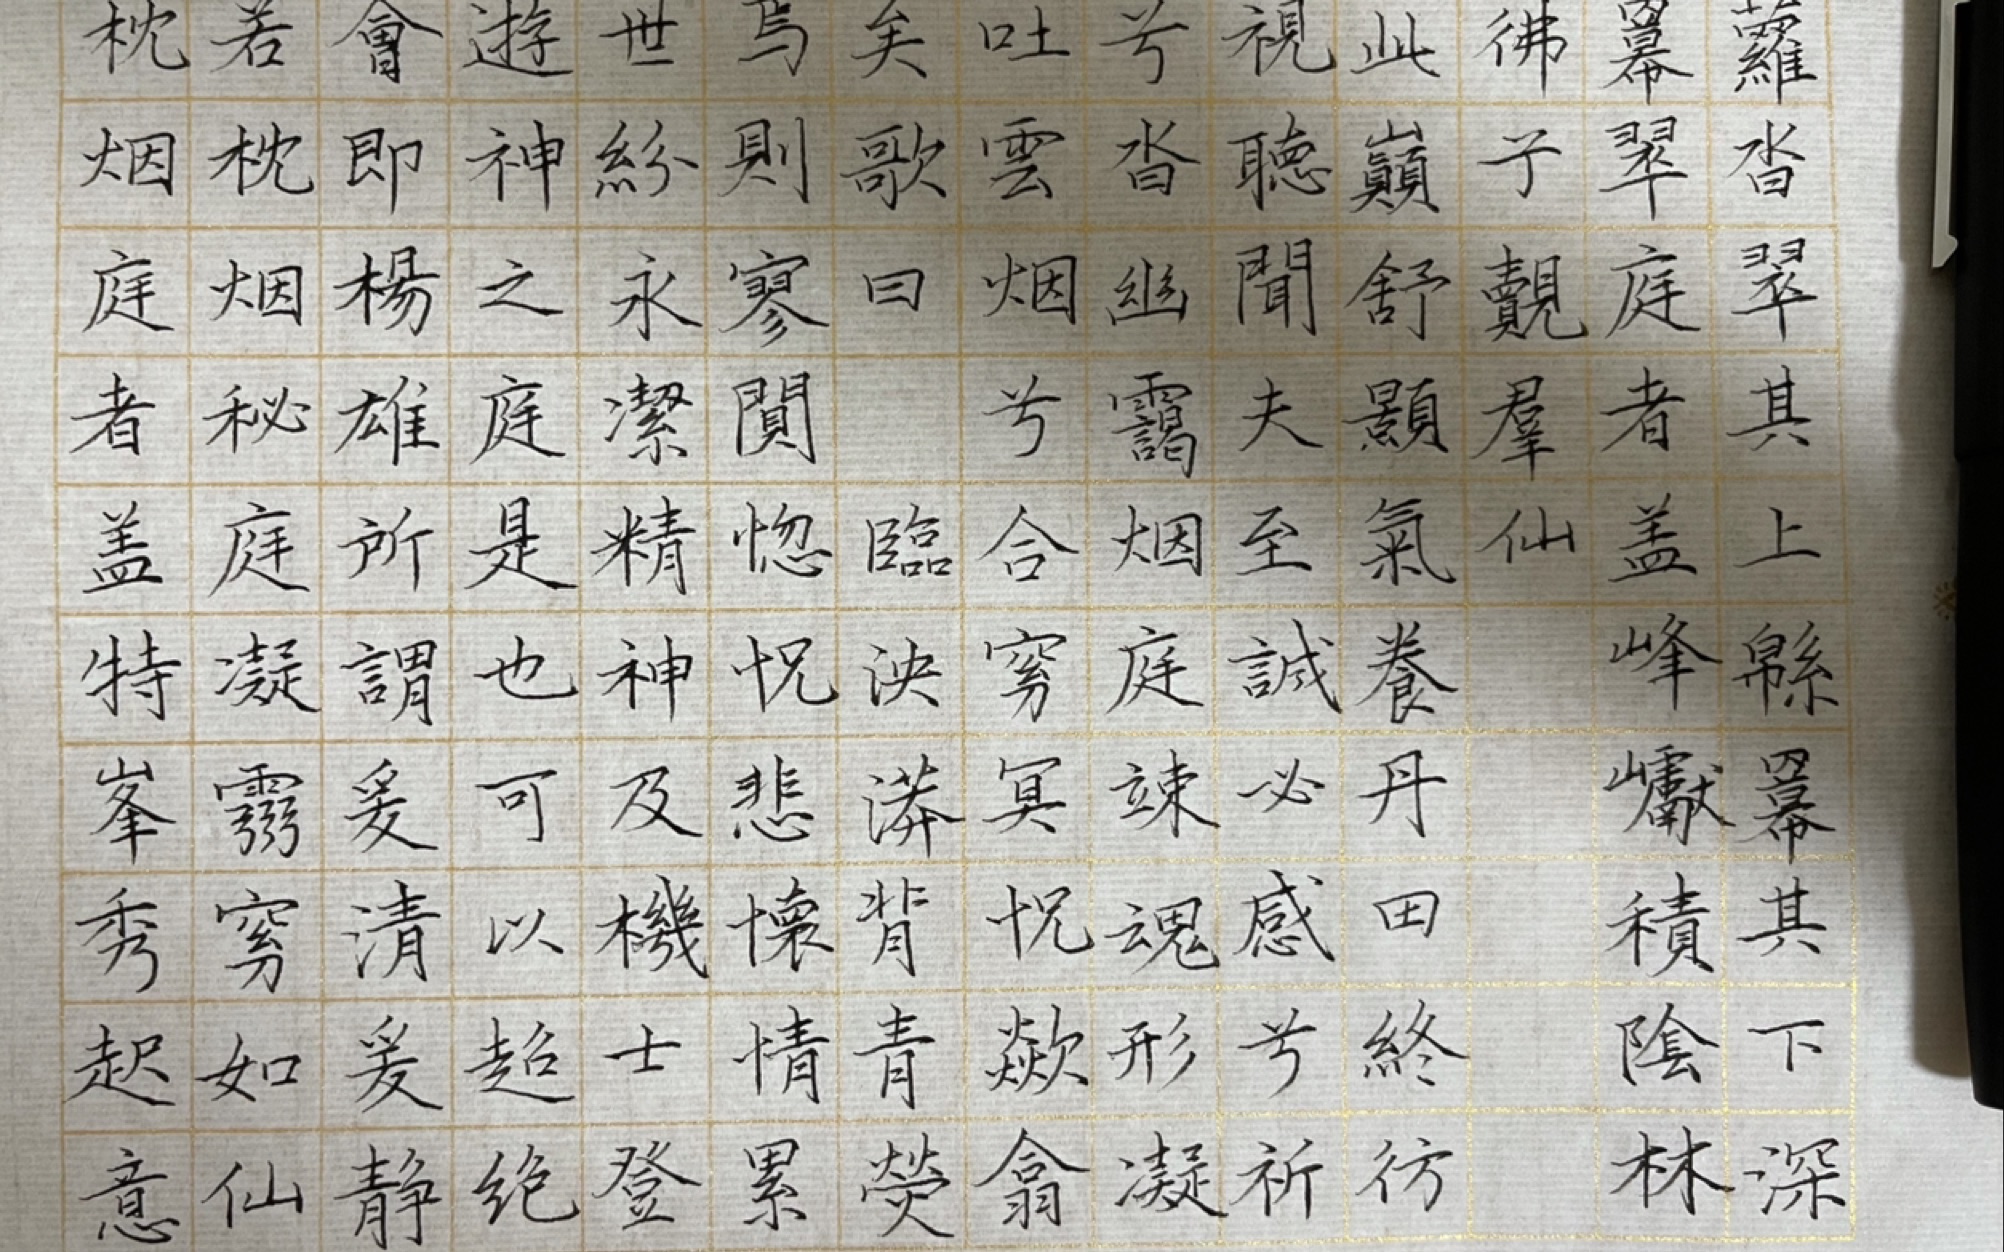 蘿沓翠其上緜羃其下深
羃翠庭者盖峰巘積陰林
彿予覿羣仙
此巔舒顥氣養丹田終彷
視聽聞夫至誠必感兮祈
兮沓幽靄烟庭竦魂形凝
吐雲烟兮合窈冥怳歘翕
矣歌曰 臨泱漭背青熒
焉則寥闃惚怳悲懷情累
世紛永潔精神及機士登
遊神之庭是也可以超绝
會即楊雄所謂爰清爰静
若枕烟秘庭凝窈如仙
枕烟庭者盖特峯秀起意